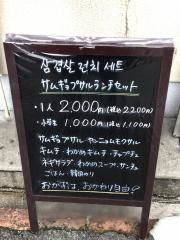 삼겹살 런치 세트
サムギョプサルランチセット
・1人 2,000円(税込2,200円)
・小学生 1,000円(税込1,100円)
サムギョプサル・ヤンニョムモクサル
キムチ・わかめキムチ・チャプチェ
ネギサラダ・わかめスープ・サンチュ
ごはん・韓国のり
おかずは、おかわり自由♡